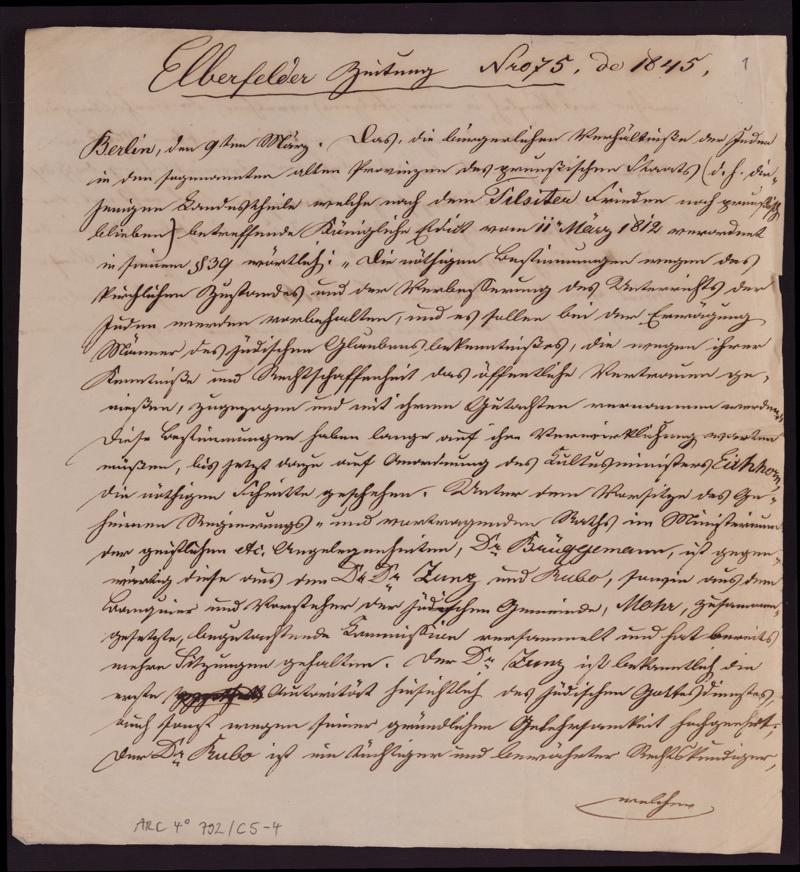 Elberfelder Zeitung Nro 75. de 1845.
1
Berlin, den 9ten März. Das, die bürgerlichen Verhältniße der Juden
in den sogenannten alten Provinzen des preußischen Staats (d. h. die-
jenigen Landestheile welche nach dem Tilsiter Frieden noch preußisch
blieben) betreffende Königliche Edict vom 11 März 1812 verordnet
in seinem §39 wörtlich: „Die nöthigen Bestimmungen wegen des
kirchlichen Zustandes und der Verbeßerung des Unterrichts der
Juden werden vorbehalten, und es sollen bei der Erwägung
Männer des jüdischen Glaubensbekenntnißes, die wegen ihrer
Kenntniße und Rechtschaffenheit das öffentliche Vertrauen ge-
nießen, zugezogen und mit ihrem Gutachten vernommen werden“
Diese Bestimmungen haben lange auf ihre Verwirklichung warten
müßen, bis jetzt dazu auf Anordnung des Kultusministers Eichhorn,
die nöthigen Schritte geschehen. Unter dem Vorsitze des Ge-
heimen Regierungs- und vortragenden Raths im Ministerium
der geistlichen etc. Angelegenheiten, Dr Brüggemann, ist gegen-
wärtig diese aus den Dr. Dr Zunz und Rubo, sowie aus dem
Banquier und Vorsteher der jüdischen Gemeinde, Mohr, zusammen-
gesetzte, begutachtende Kommission versammelt und hat bereits
mehre Sitzungen gehalten. Der Dr Zunz ist bekanntlich die
erste Autorität hinsichtlich des jüdischen Gottesdienstes,
auch sonst wegen seiner gründlichen Gelehrsamkeit hochgeehrt.
Der Dr Rubo ist ein tüchtiger und bewährter Rechtskundiger,
welcher
ARC 4° 792/C5-4